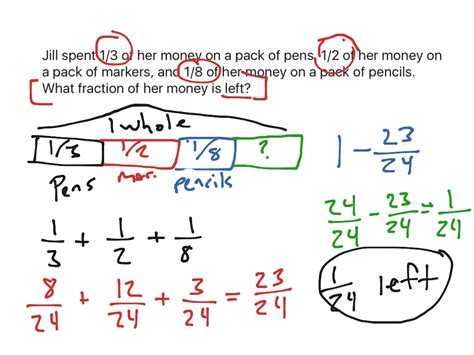 Jill spent 1/3 of her money on a pack of pens, 1/2 of her money on
a pack of markers, and 1/8 of her money on a pack of pencils.
What fraction of her money is left?
1 whole
1/3 1/2 1/8 ?
Pens mar. pencils
1 - 23/24
24/24 - 23/24 = 1/24
1/3 + 1/2 + 1/8
8/24 + 12/24 + 3/24 = 23/24
1/24 left